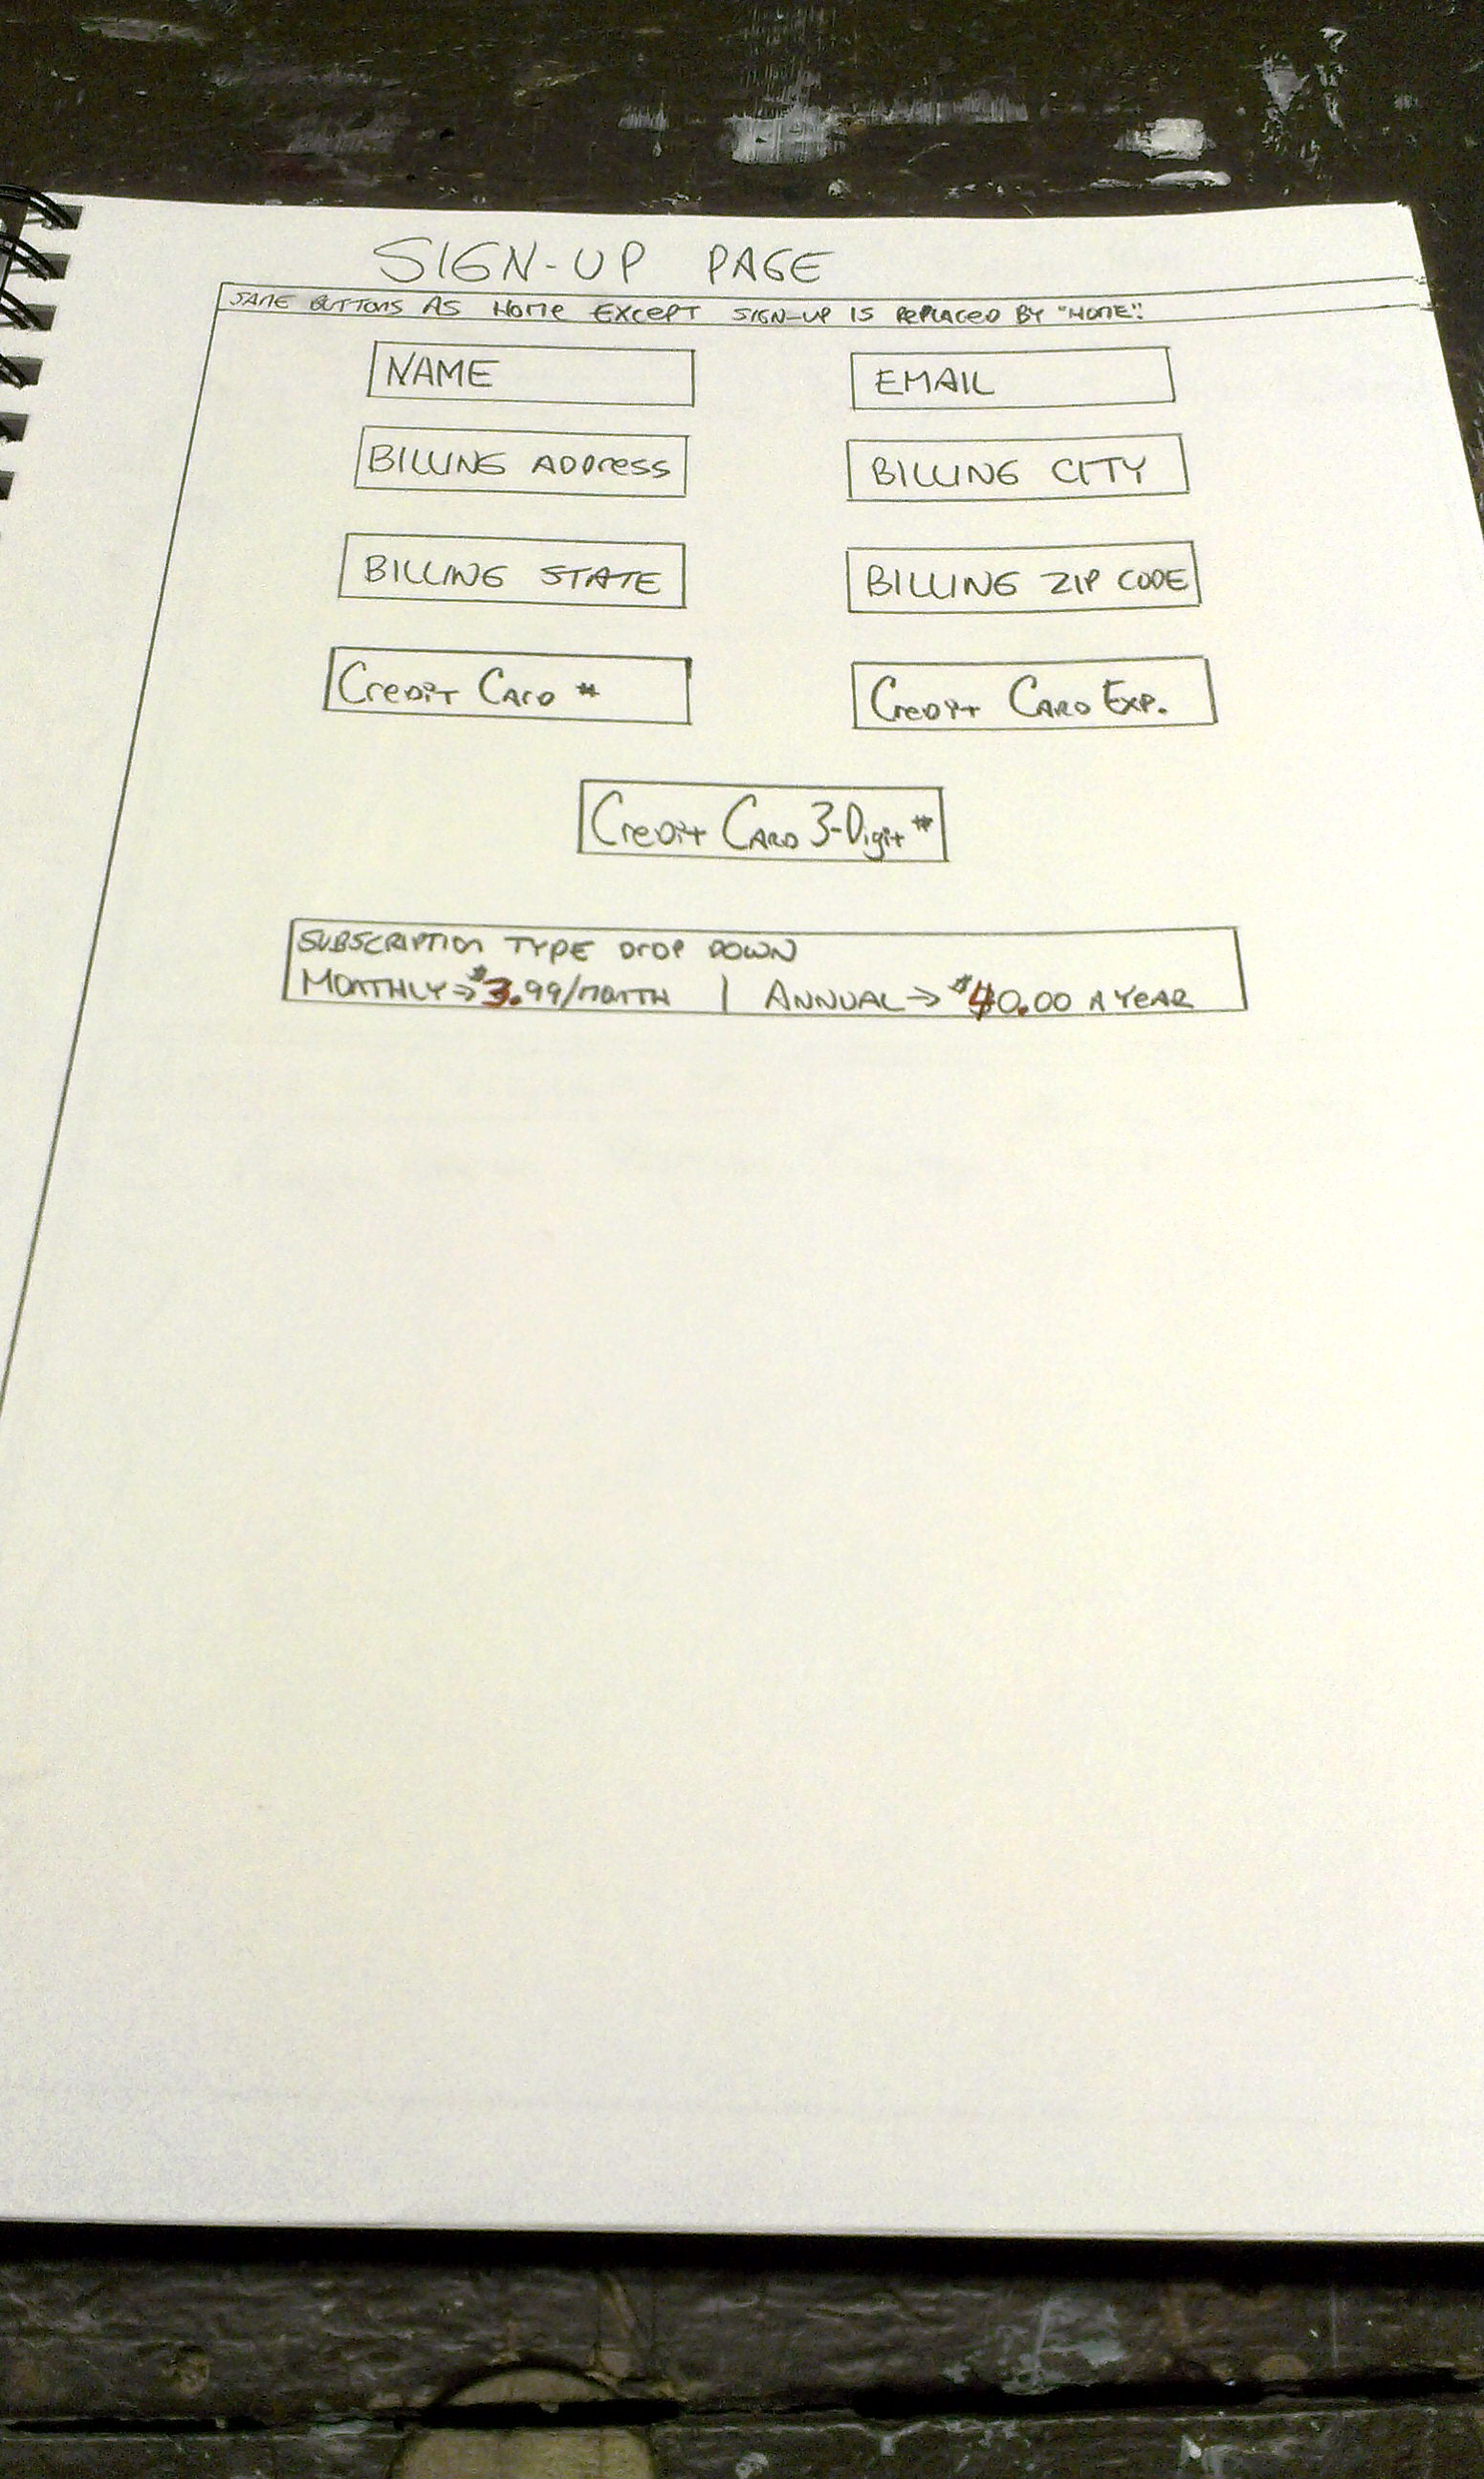 SIGN-UP PAGE
SAME BUTTONS AS HOME EXCEPT SIGN-UP IS REPLACED BY "HOME".
NAME
EMAIL
BILLING ADDRESS
BILLING CITY
BILLING STATE
BILLING ZIP CODE
CREDIT CARD #
CREDIT CARD EXP.
CREDIT CARD 3-Digit #
SUBSCRIPTION TYPE DROP DOWN
MONTHLY → $3.99/MONTH | ANNUAL → $40.00 A YEAR